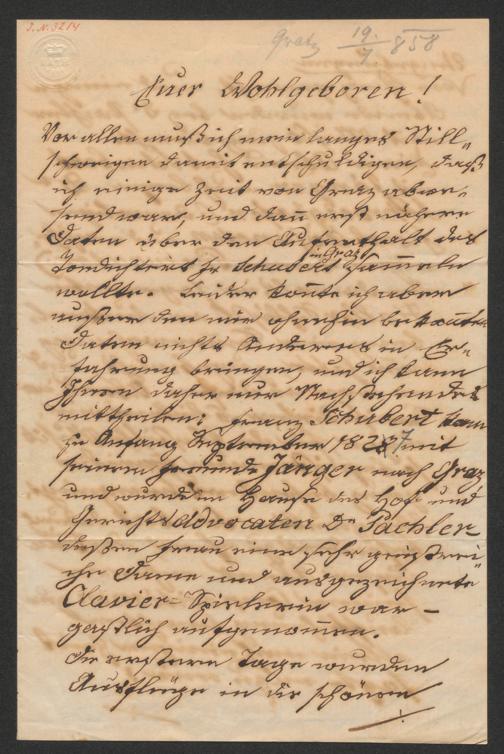 I. N. 3214
Graz 19./7. 858
Euer Wohlgeboren!
Vor allen muß ich mein langes Still-
schweigen damit entschuldigen, daß
ich einige Zeit von Graz abwe-
send war, und dann erst nähere
Daten über den Aufenthalt des
Tondichters Fr Schubert in Graz sam̅eln
wollte. Leider kon̅te ich aber
außer den mir ohnehin bekan̅ten
Daten nichts Anderes in Er-
fahrung bringen, und ich kann
Ihnen daher nur Nachstehendes
mittheilen: Franz Schubert kam
zu Anfang September 1827 mit
seinem Freunde Jänger nach Graz
und wurde im Hause des Hof und
Gerichts Advocaten Dr Pachler-
deßen Frau eine sehr geistrei-
che Dame und ausgezeichnete
Clavier-Spielerin war –
gastlich aufgenom̅en.
Die ersteren Tage wurden
Ausflüge in die schönen